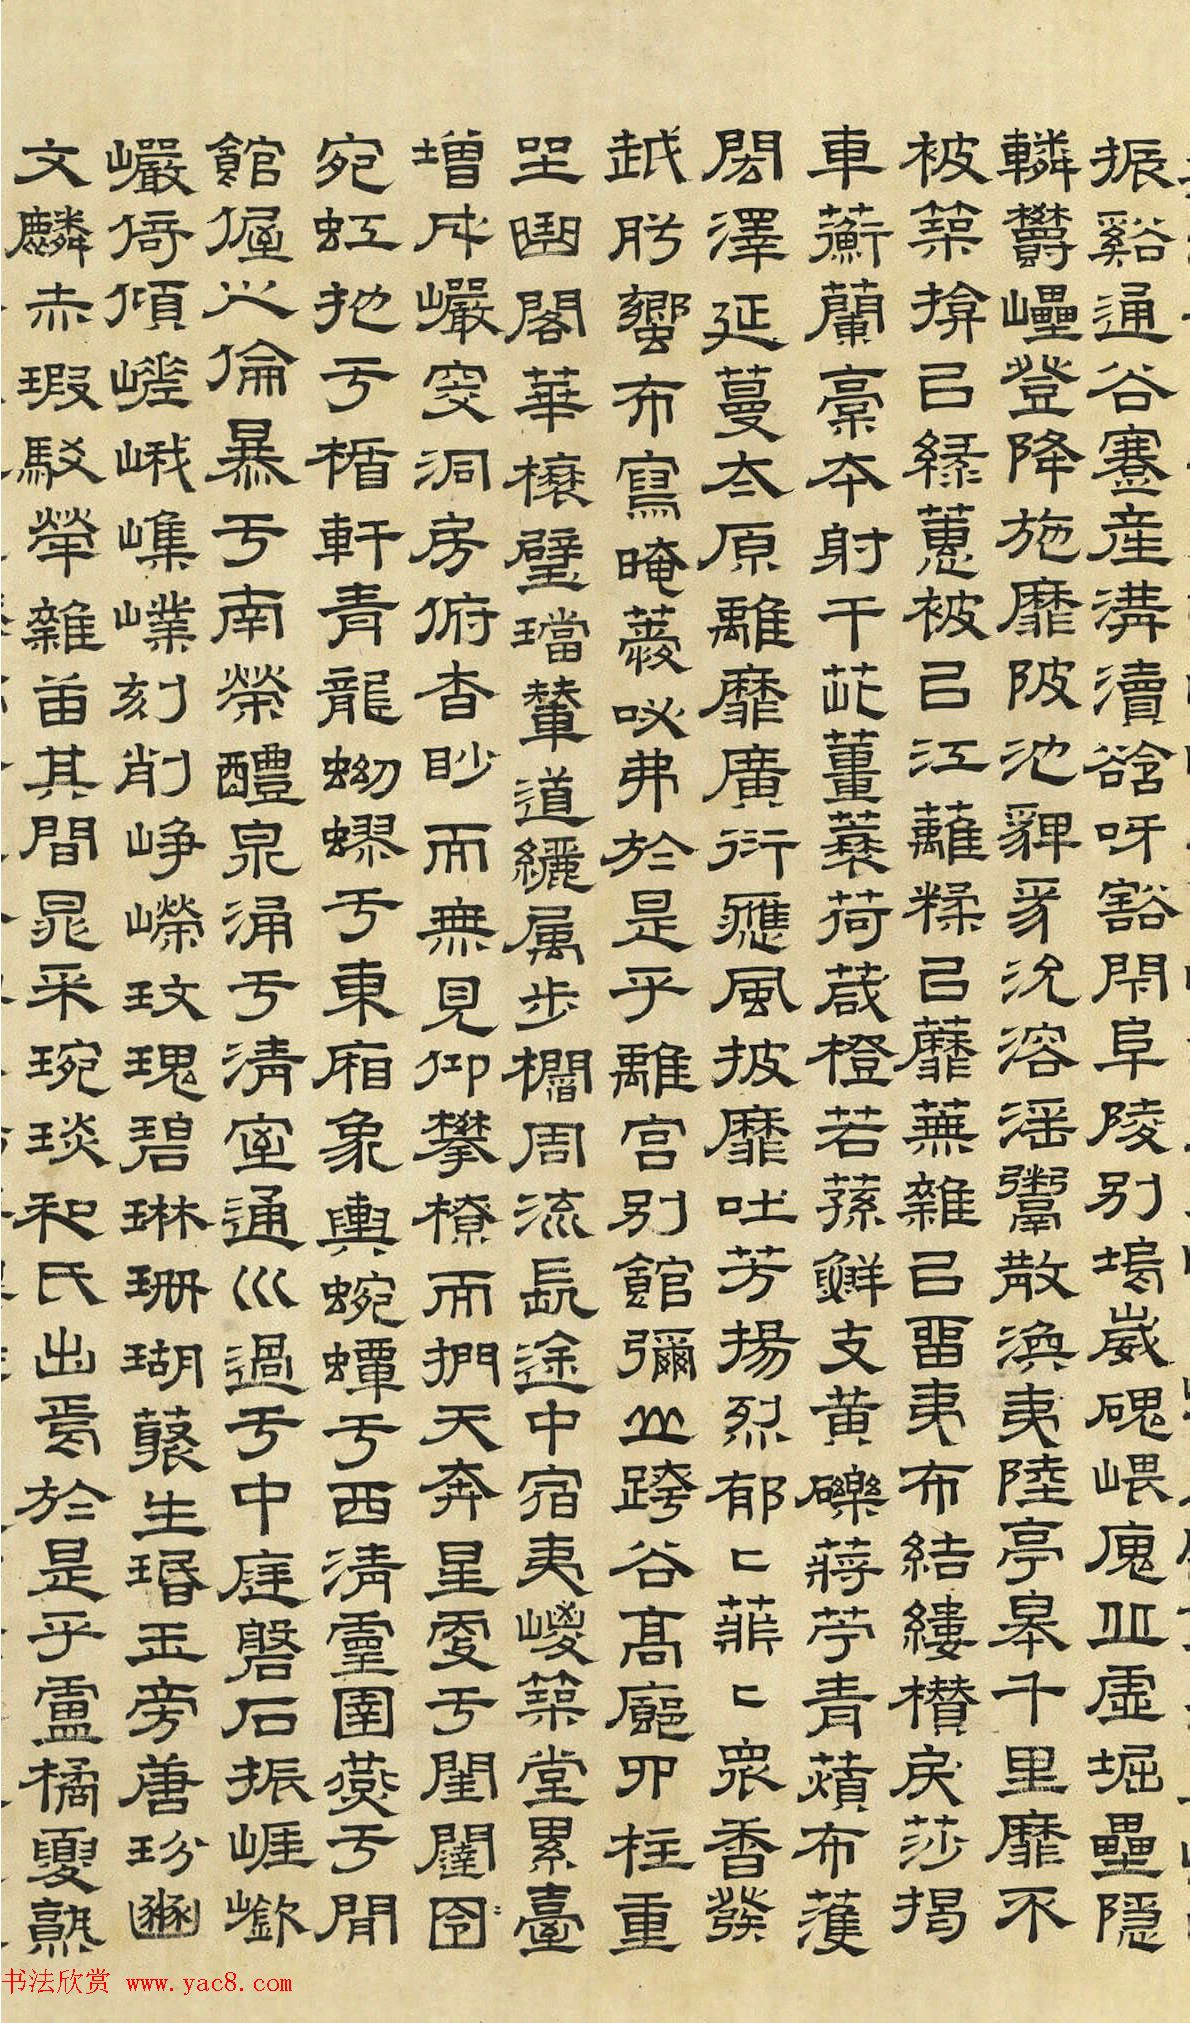 振谿通谷蹇產溝瀆谽呀豁閕阜陵別塢崴磈嵔廆丘虛堀礨隱
轔鬱壘登降施靡陂池貏豸沇溶淫鬻散渙夷陸亭皋千里靡不
被築揜㠯綠蕙被㠯江蘺糅㠯蘼蕪雜㠯畱夷布結縷欑戾莎揭
車蘅蘭槀本射干茈薑蘘荷葴橙若蓀鮮支黃礫蔣苧青薠布濩
閎澤延蔓太原離靡廣衍應風披靡吐芳揚烈郁﹦菲﹦眾香發
越肸蠁布寫晻薆咇弗於是乎離宮別館彌山跨谷高廊四柱重
坐曲閣華榱璧璫輦道纚屬步櫩周流長途中宿夷嵏築堂累臺
增成巖窔洞房俯杳眇而無見仰攀橑而捫天奔星更于閨闥
宛虹拖于楯軒青龍蚴蟉于東廂象輿蜿蟬于西清靈圄燕于閒
館偓佺之倫暴于南榮醴泉涌于清室通川過于中庭磐石振崖嶔
巖倚傾嵯峨嶕嶫刻削崢嶸玫瑰碧琳珊瑚叢生瑉玉旁唐玢豳
文鱗赤瑕駁犖雜臿其間晁采琬琰和氏出焉於是乎盧橘夏熟
书法欣赏 www.yac8.com